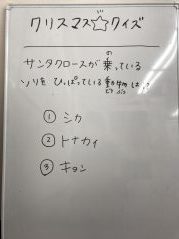 クリスマス☆クイズ
サンタクロースが乗っている
の
ソリをひっぱっている動物は?
どうぶつ
① シカ
② トナカイ
③ キョン